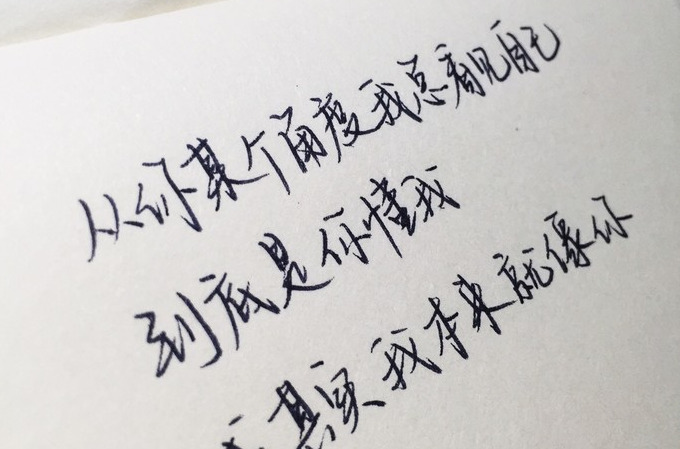 从你某个角度我总看见自己
到底是你懂我
其实我本来就像你